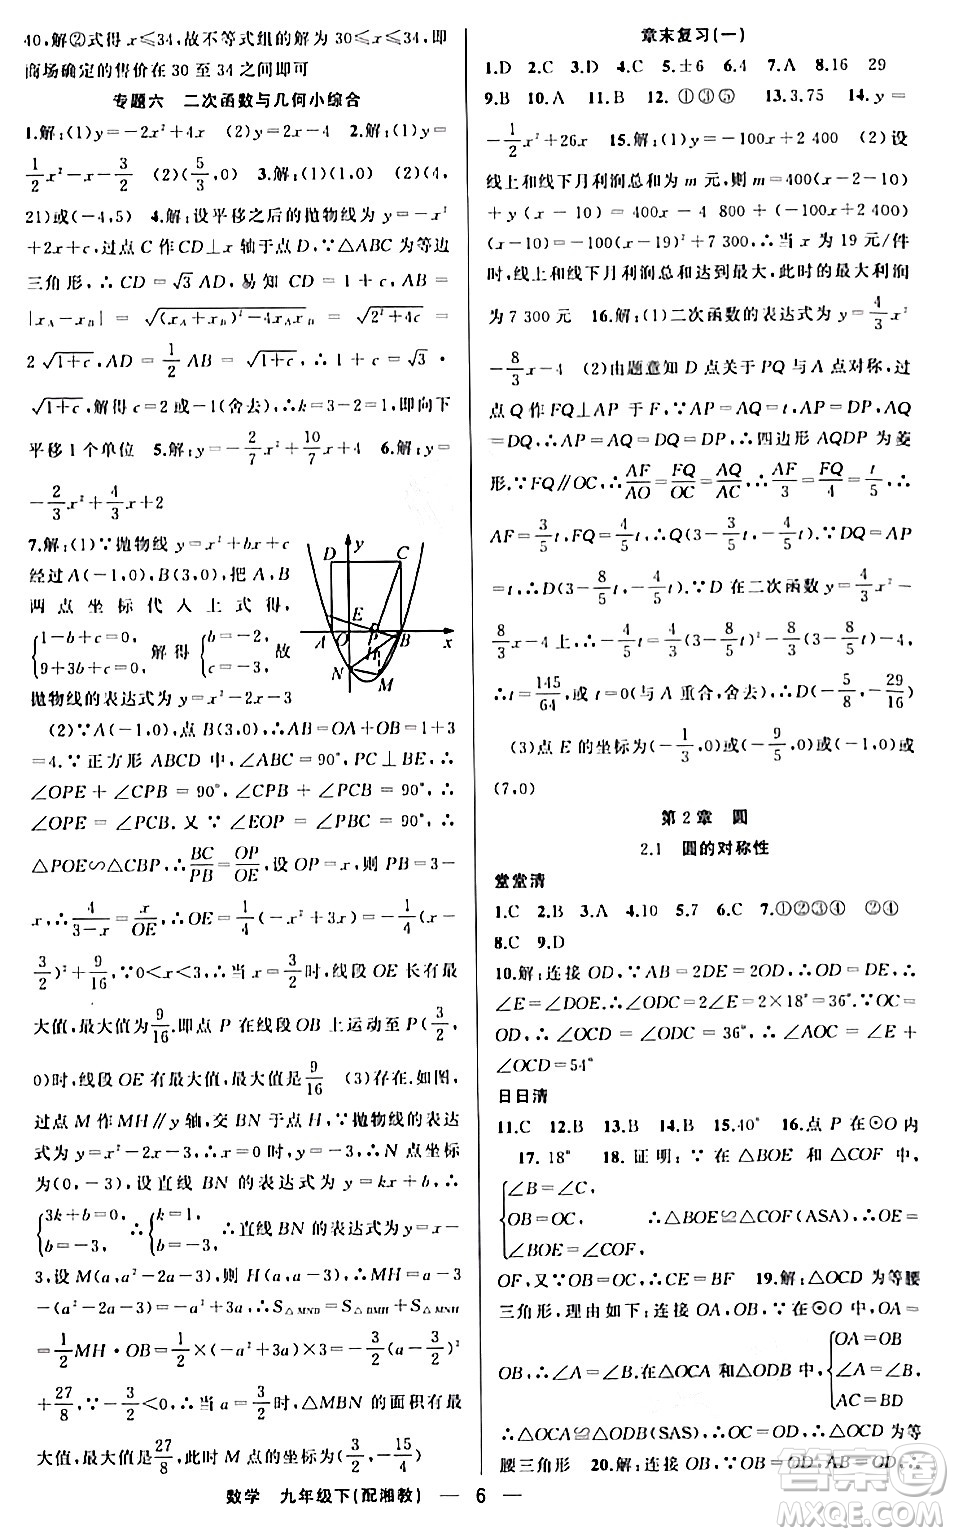 40,解②式得 x≤34,故不等式组的解为 30≤x≤34,即
商场确定的售价在 30 至 34 之间即可
专题六 二次函数与几何小综合
1.解:(1)y=-2x²+4x (2)y=2x-4 2.解:(1)y=
1/2x²-x-3/2 (2)(5/3,0) 3.解:(1)(1,0) (2)(4,
21)或(-4,5) 4.解:设平移之后的抛物线为 y=-x²
+2x+c,过点 C 作 CD⊥x 轴于点 D,∵△ABC 为等边
三角形,∴CD=√3AD,易知 CD=1+c,AB=
|x_A-x_B|=√((x_A+x_B)²-4x_Ax_B)=√(2²+4c)=
2√(1+c),AD=1/2AB=√(1+c),∴1+c=√3·
√(1+c),解得 c=2或-1(舍去),∴k=3-2=1,即向下
平移 1 个单位 5.解:y=-2/7x²+10/7x 6.解:y=
-2/3x²+4/3x+2
7.解:(1)∵抛物线 y=x²+bx+c
经过 A(-1,0),B(3,0),把 A,B
两点坐标代入上式得,
{1-b+c=0, 9+3b+c=0, 解得 {b=-2, c=-3, 故
抛物线的表达式为 y=x²-2x-3
D y C E A O P B x H N M
(2)∵A(-1,0),点 B(3,0),∴AB=OA+OB=1+3
=4.∵正方形 ABCD 中,∠ABC=90°,PC⊥BE,∴
∠OPE+∠CPB=90°,∠CPB+∠PCB=90°,∴
∠OPE=∠PCB.又∵∠EOP=∠PBC=90°,∴
△POE∽△CBP,∴BC/PB=OP/OE,设 OP=x,则 PB=3-
x,∴4/(3-x)=x/OE,∴OE=1/4(-x²+3x)=-1/4(x-
3/2)²+9/16,∵0<x<3,∴当 x=3/2时,线段 OE 长有最
大值,最大值为9/16.即点 P 在线段 OB 上运动至 P(3/2,
0)时,线段 OE 有最大值,最大值是9/16 (3)存在.如图,
过点 M 作 MH∥y 轴,交 BN 于点 H,∵抛物线的表达
式为 y=x²-2x-3,∴当 x=0时,y=-3,∴N 点坐标
为(0,-3),设直线 BN 的表达式为 y=kx+b,∴
{3k+b=0, b=-3, ∴{k=1, b=-3, ∴直线 BN 的表达式为 y=x-
3,设 M(a,a²-2a-3),则 H(a,a-3),∴MH=a-3
-(a²-2a-3)=-a²+3a,∴S△MNB=S△BMH+S△MNH=
1/2MH·OB=1/2×(-a²+3a)×3=-3/2(a-3/2)²
+27/8,∵-3/2<0,∴当 a=3/2时,△MBN 的面积有最
大值,最大值是27/8,此时 M 点的坐标为(3/2,-15/4)
章末复习(一)
1.D 2.C 3.C 4.C 5.±6 6.4 7.A 8.16 29
9.B 10.A 11.A 12.①③⑤ 13.3.75 14.y=
-1/2x²+26x 15.解:(1)y=-100x+2 400 (2)设
线上和线下月利润总和为 m 元,则 m=400(x-2-10)
+y(x-10)=400x-4 800+(-100x+2 400)
(x-10)=-100(x-19)²+7 300,∴当 x 为 19 元/件
时,线上和线下月利润总和达到最大,此时的最大利润
为 7 300 元 16.解:(1)二次函数的表达式为 y=4/3x²
-8/3x-4 (2)由题意知 D 点关于 PQ 与 A 点对称,过
点 Q 作 FQ⊥AP 于 F,∵AP=AQ=t,AP=DP,AQ=
DQ,∴AP=AQ=DQ=DP,∴四边形 AQDP 为菱
形.∵FQ∥OC,∴AF/AO=FQ/OC=AQ/AC,∴AF/3=FQ/4=t/5,∴
AF=3/5t,FQ=4/5t,∴Q(3-3/5t,-4/5t),∵DQ=AP
=t,∴D(3-8/5t,-4/5t).∵D 在二次函数 y=4/3x²-
8/3x-4 上,∴-4/5t=4/3(3-8/5t)²-8/3(3-8/5t)-4,
∴t=145/64,或 t=0(与 A 重合,舍去),∴D(-5/8,-29/16)
(3)点 E 的坐标为(-1/3,0)或(-9/5,0)或(-1,0)或
(7,0)
第 2 章 圆
2.1 圆的对称性
堂堂清
1.C 2.B 3.A 4.10 5.7 6.C 7.①②③④ ②④
8.C 9.D
10.解:连接 OD,∵AB=2DE=2OD,∴OD=DE,∴
∠E=∠EOD,∴∠ODC=2∠E=2×18°=36°.∵OC=
OD,∴∠OCD=∠ODC=36°,∴∠AOC=∠E+
∠OCD=54°
日日清
11.C 12.B 13.B 14.B 15.40° 16.点 P 在⊙O 内
17.18° 18.证明:∵在△BOE 和△COF 中,
{∠B=∠C, OB=OC, ∠BOE=∠COF, ∴△BOE≌△COF(ASA),∴OE=
OF,又∵OB=OC,∴CE=BF 19.解:△OCD 为等腰
三角形,理由如下:连接 OA,OB,∵在⊙O 中,OA=
OB,∴∠A=∠B.在△OCA 和△ODB 中,{OA=OB ∠A=∠B, AC=BD
∴△OCA≌△ODB(SAS),∴OC=OD,∴△OCD 为等
腰三角形 20.解:∵OC=OD,∴∠D=∠OCD,∵
数学 九年级下(配湘教) — 6 —
答案圈
MXQE.COM